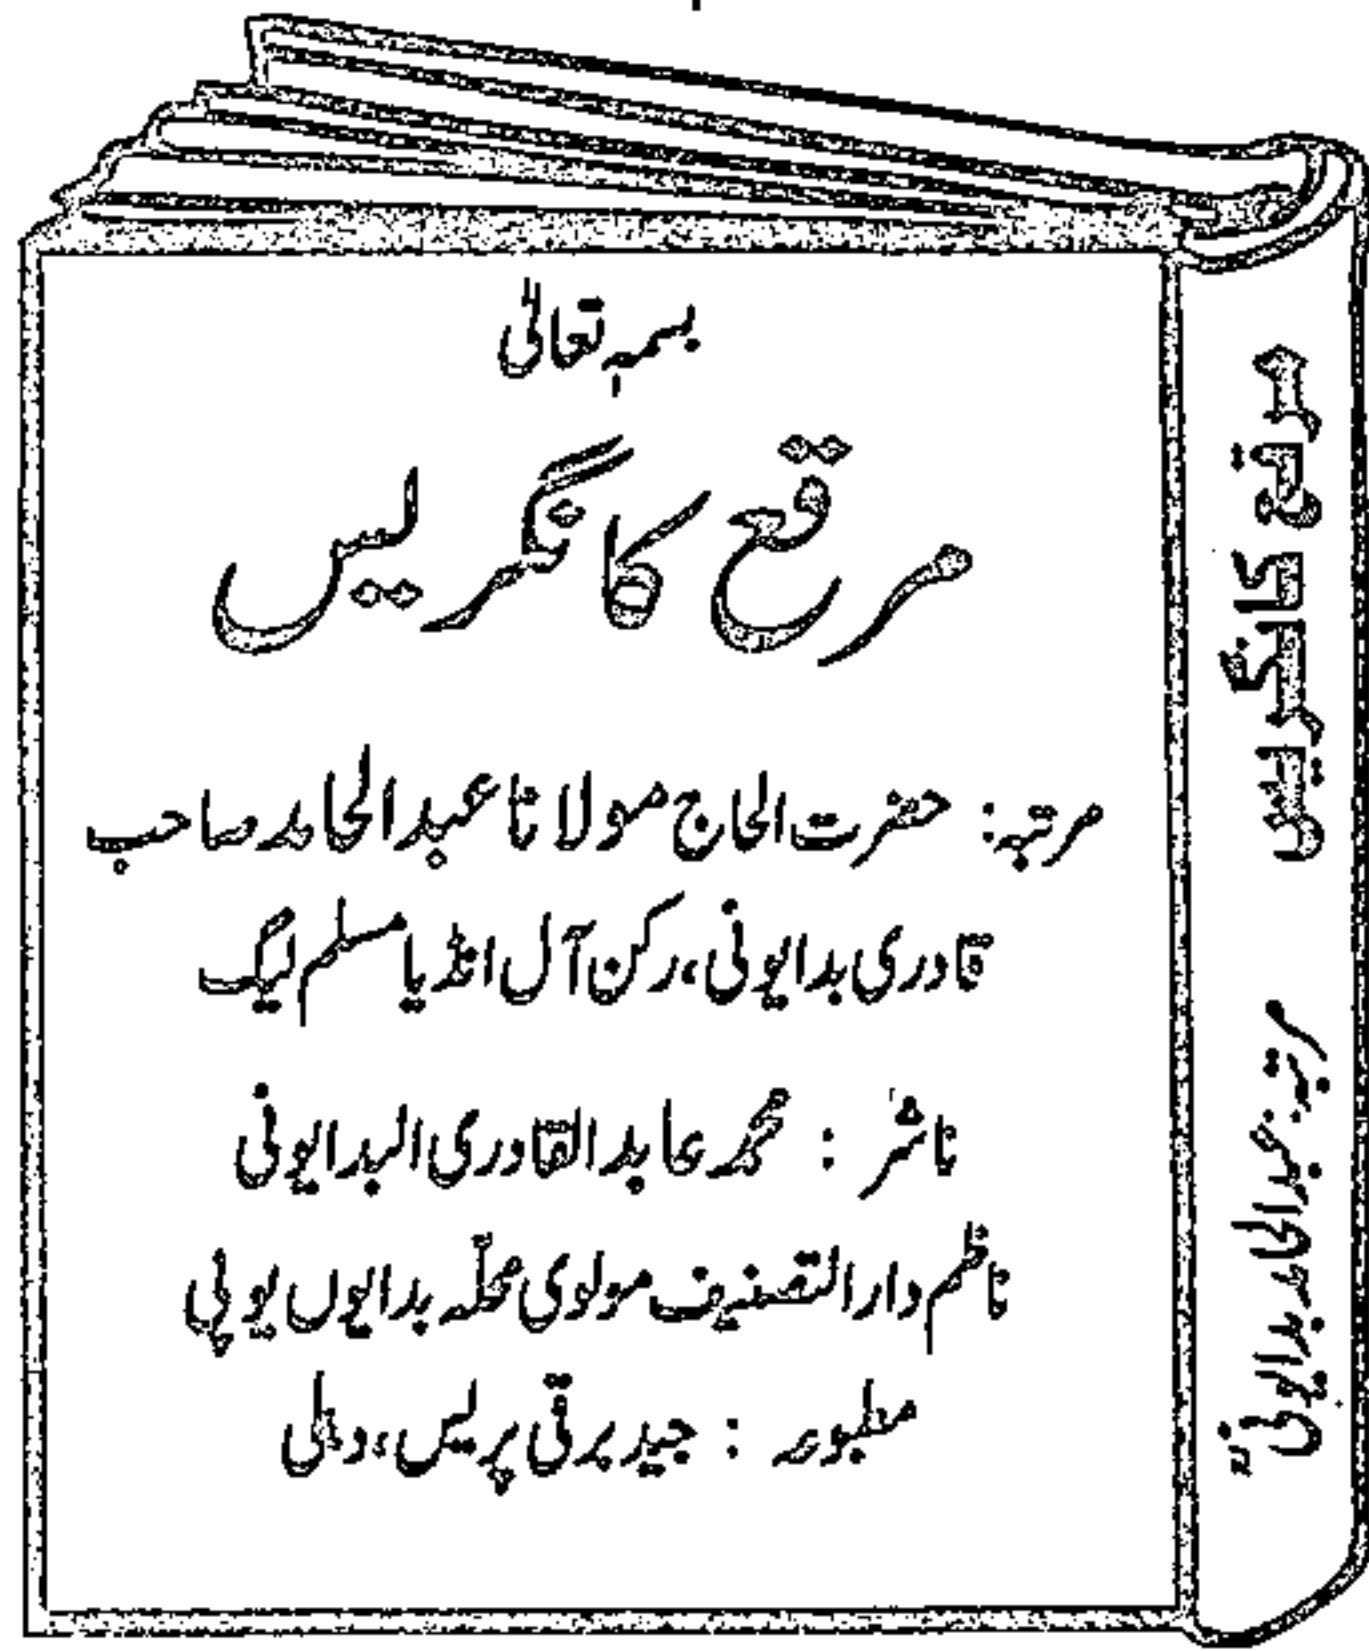 بسمہٖ تعالیٰ
مرقع کانگریس
مرتبہ: حضرت الحاج مولانا عبدالحامد صاحب
قادری بدایونی، رکن آل انڈیا مسلم لیگ
ناشر : محمد عابد القادری البدایونی
ناظم دارالتصنیف مولوی محلّہ بدایوں یوپی
مطبوعہ : جید برقی پریس، دہلی
مرقع کانگریس
مرتبہ: عبدالحامد بدایونی